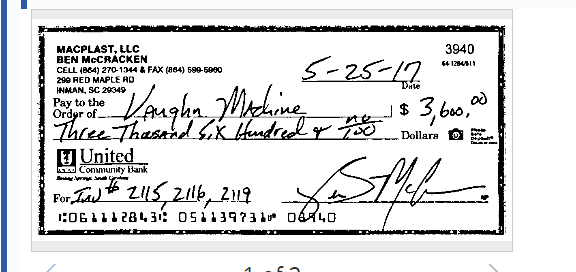 MACPLAST, LLC
BEN McCRACKEN
CELL (864) 270-1344 & FAX (864) 599-5960
299 RED MAPLE RD
INMAN, SC 29349
3940
5-25-17
Date
Pay to the
Order of Vaughn Machine $ 3,600.00
Three Thousand Six Hundred & no/100 Dollars
United
Community Bank
For INV # 2115, 2116, 2119
⑆061112843⑆ 051139731⑈ 03940
1 of 2